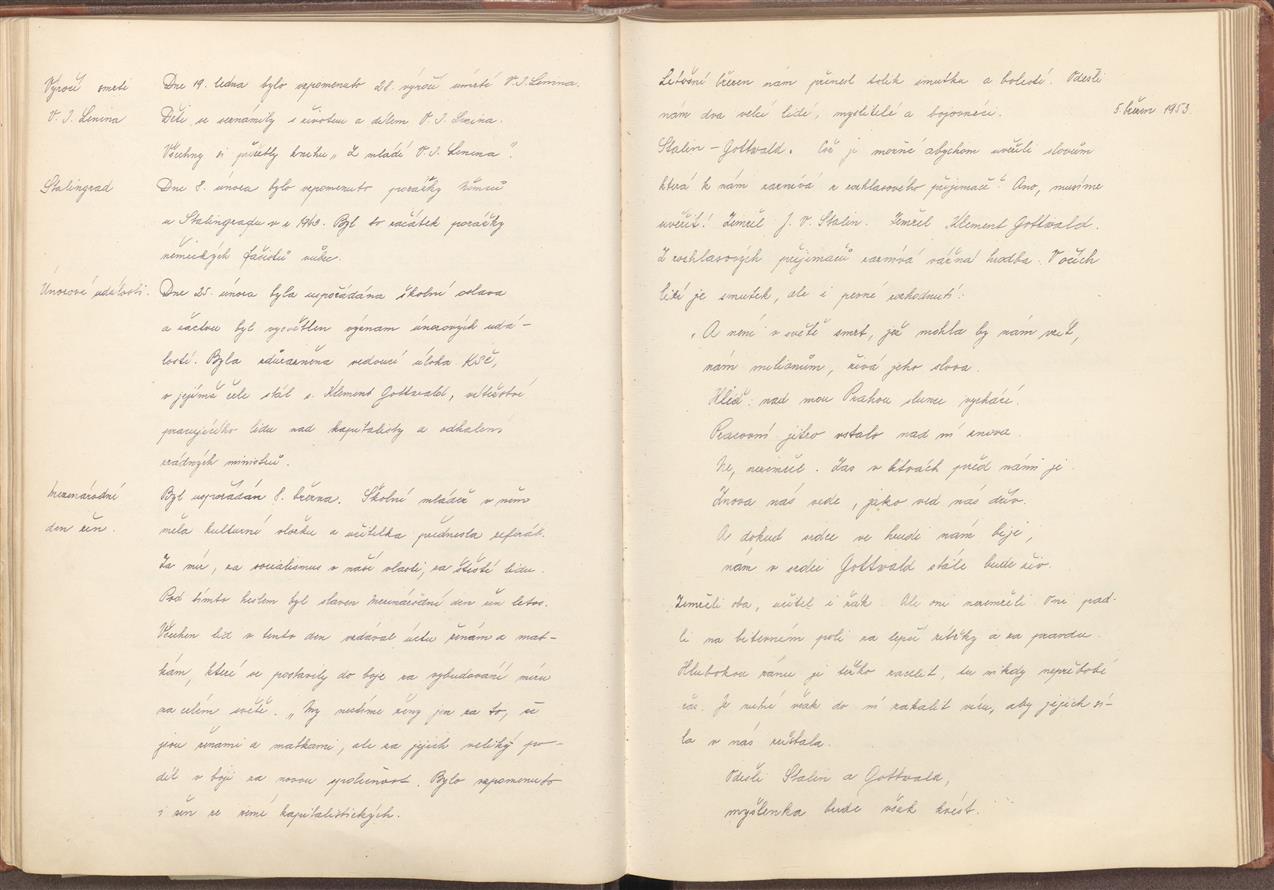 Výročí smrti
V. I. Lenina
Dne 19. ledna bylo vzpomenuto 28. výročí úmrtí V. I. Lenina.
Děti se seznamily s životem a dílem V. I. Lenina.
Všechny si přečetly knihu „Z mládí V. I. Lenina".
Stalingrad
Dne 8. února bylo vzpomenuto porážky Němců
u Stalingradu v r. 1943. Byl to začátek porážky
německých fašistů vůbec.
Únorové události.
Dne 25. února byla uspořádána školní oslava
a žactvu byl vysvětlen význam únorových udá-
lostí. Byla zdůrazněna vedoucí úloha KSČ,
v jejímž čele stál s. Klement Gottwald, vítězství
pracujícího lidu nad kapitalisty a odhalení
zrádných ministrů.
Mezinárodní
den žen.
Byl uspořádán 8. března. Školní mládež v něm
měla kulturní vložku a učitelka přednesla referát.
Za mír, za socialismus v naší vlasti, za štěstí lidu.
Pod tímto heslem byl slaven Mezinárodní den žen letos.
Všechen lid v tento den vzdával úctu ženám a mat-
kám, které se postavily do boje za vybudování míru
na celém světě. „My nectíme ženy jen za to, že
jsou ženami a matkami, ale za jejich veliký po-
díl v boji za novou společnost. Bylo vzpomenuto
i žen ze zemí kapitalistických.
Letošní březen nám přinesl tolik smutku a bolesti. Odešli
nám dva velcí lidé, myslitelé a bojovníci.
5. březen 1953.
Stalin – Gottwald. Což je možné abychom uvěřili slovům
která k nám zaznívá z rozhlasového přijimače? Ano, musíme
uvěřit! Zemřel J. V. Stalin. Zemřel Klement Gottwald.
Z rozhlasových přijimačů zaznívá vážná hudba. V očích
lidí je smutek, ale i pevné rozhodnutí:
„A není v světě smrt, jež mohla by nám vzít,
nám milionům, živá jeho slova.
Hleď: nad mou Prahou slunce vychází.
Pracovní jitro vstalo nad ní znova.
Ne, nezemřel. Zas v bitvách před námi je.
Znova nás vede, jako ved nás dřív.
A dokud srdce ve hrudi nám bije,
nám v srdci Gottwald stále bude živ.
Zemřeli oba, učitel i žák. Ale oni nezemřeli. Oni pad-
li na bitevném poli za lepší zítřky a za pravdu.
Hlubokou ránu je těžko zacelit, tu nikdy nepřebolí
čas. Je nutné však do ní zakalit vůli, aby jejich sí-
la v nás zůstala.
Odešli Stalin a Gottwald,
myšlenka bude však kvést.